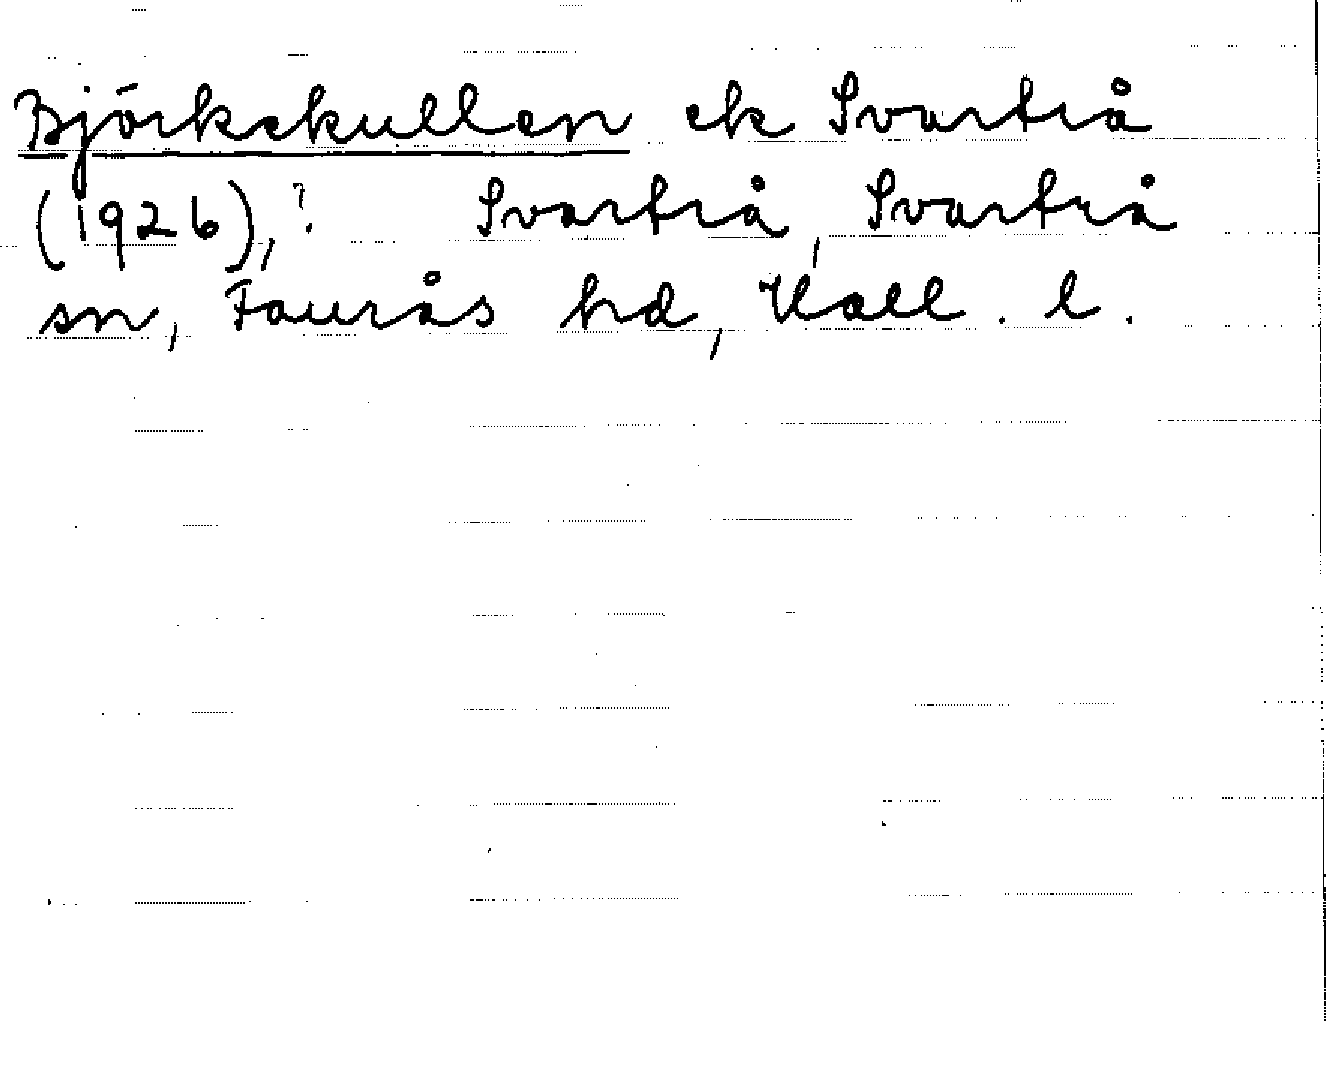 Björkekullen ek Svartrå
(1926), ? Svartrå, Svartrå
sn, Faurås hd, Hall. l.